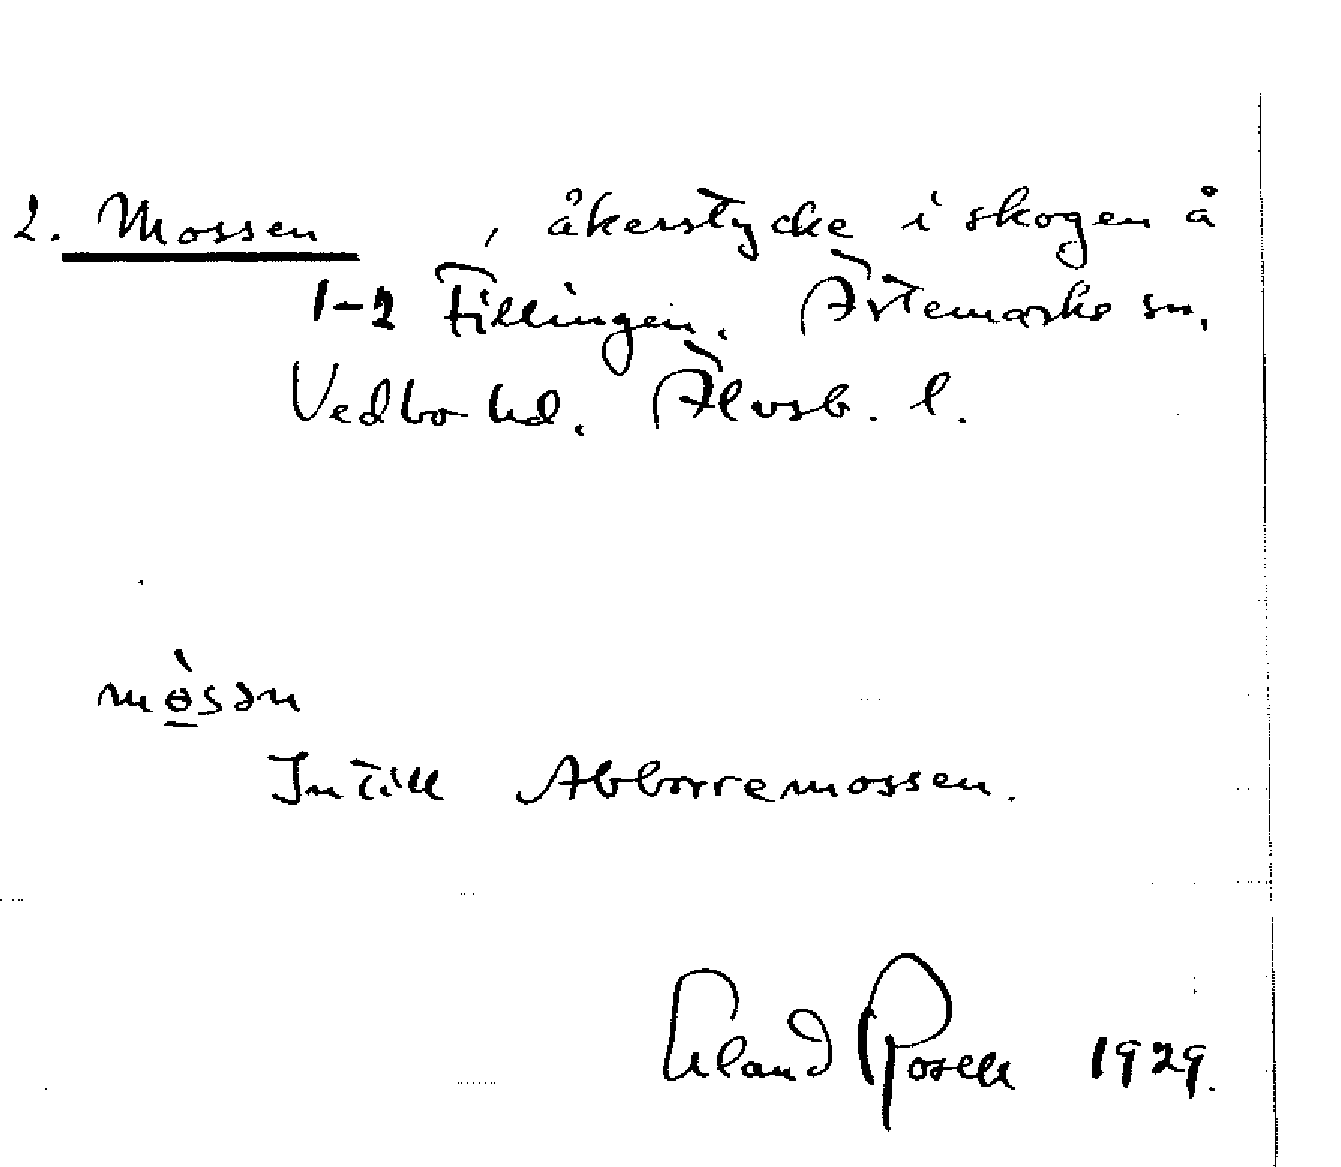 2. Mossen , åkerstycke i skogen å
1-2 Fillingen. Ärtemarks sn,
Vedbo hd. Älvsb. l.
mɵ̀sən
Intill Abborremossen.
Erland Rosell 1929.